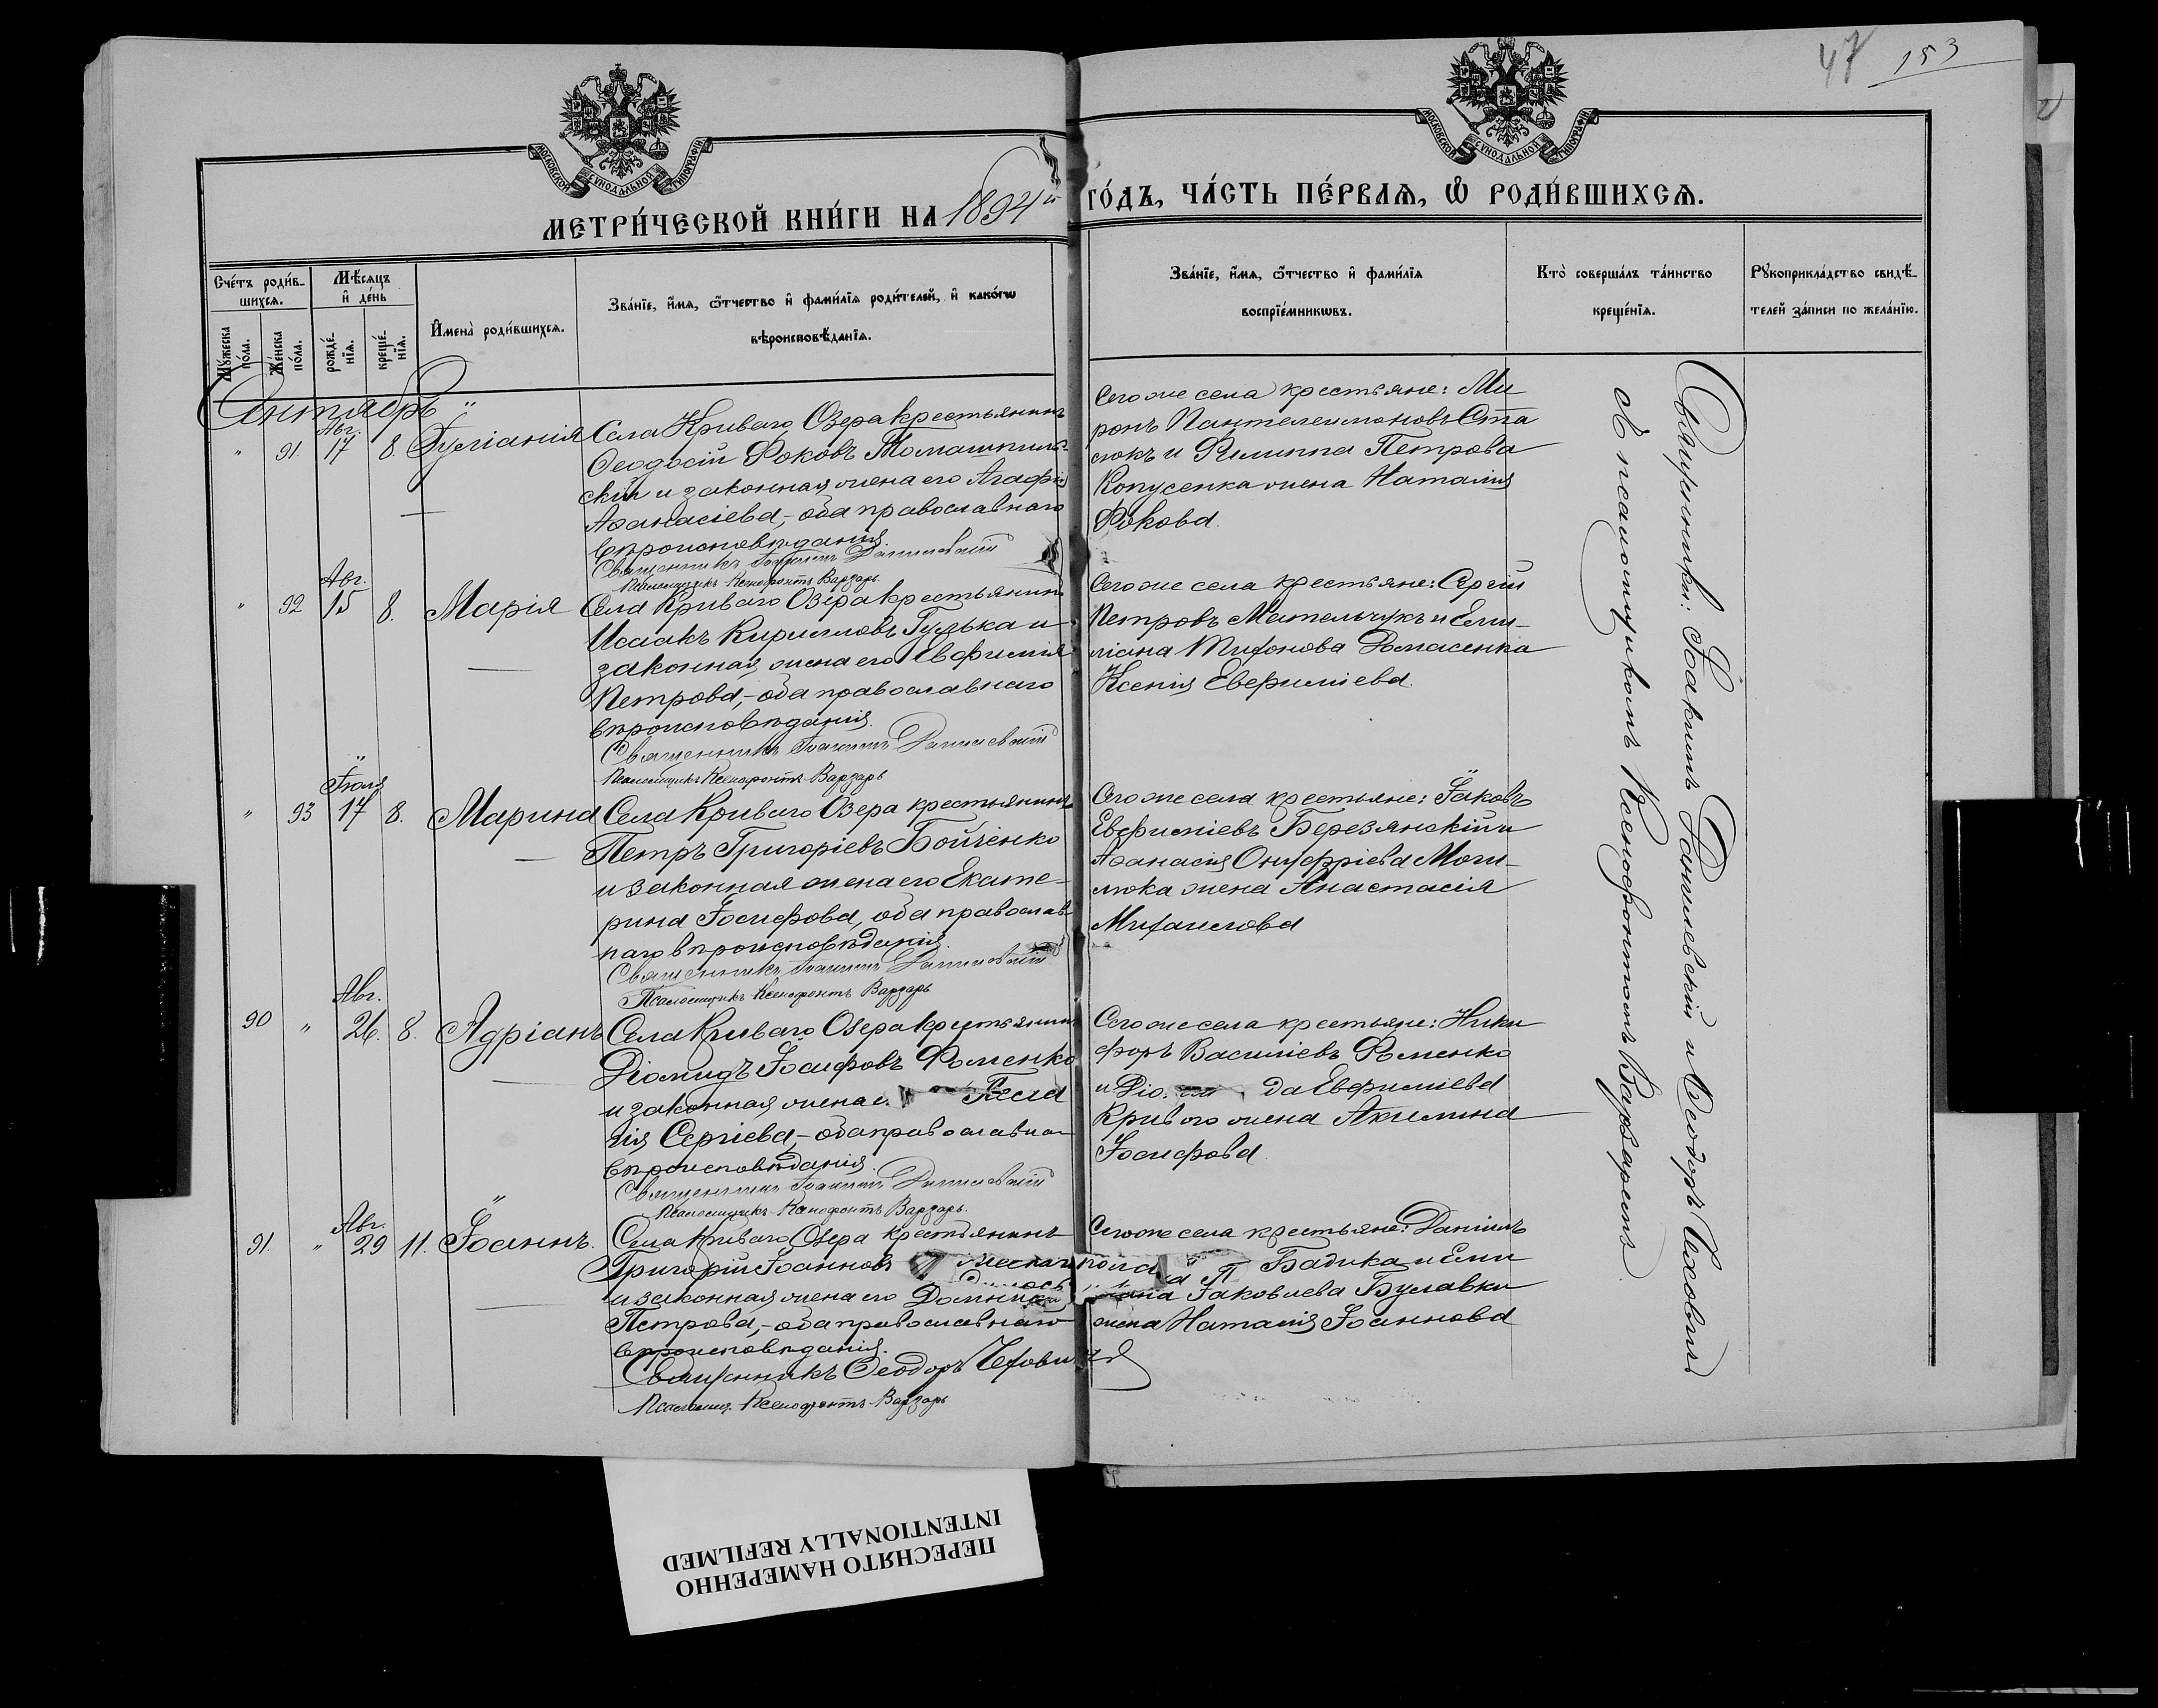 47 153
МОСКОВСКОЙ СѴНОДАЛЬНОЙ ТИПОГРАФІИ
МОСКОВСКОЙ СѴНОДАЛЬНОЙ ТИПОГРАФІИ
МЕТРИ́ЧЕСКОЙ КНИ́ГИ НА 1894й ГО́ДЪ, ЧА́СТЬ ПЕ́РВАѦ, Ѡ РОДИ́ВШИХСѦ.
Сче́тъ роди́в-
шихсѧ.
Мꙋ́жеска по́ла.
Же́нска по́ла.
Мѣ́сѧцъ и де́нь
рожде́-нїѧ.
креще́-нїѧ.
Имена̀ роди́вшихсѧ.
Зва́нїе, и́мѧ, ѻ́тчество и фами́лїѧ роди́телей, и како́гѡ
вѣроисповѣ́данїѧ.
Зва́нїе, и́мѧ, ѻ́тчество и фами́лїѧ
воспрїе́мникѡвъ.
Кто̀ соверша́лъ та́инство
креще́нїѧ.
Рꙋкоприкла́дство свидѣ́-
телей за́писи по жела́нїю.
Сентябрь
" 91. Авг. 17 8. Іуліанія
Села Криваго Озера крестьянинъ
Ѳеодосій Фоковъ Томашполь-
скій и законная жена его Агафія
Аѳанасіева,- оба православнаго
вѣроисповѣданія.
Священникъ Іоакимъ Данилевскій
Псаломщикъ Ксенофонтъ Варзарь
Сего же села крестьяне: Ми
ронъ Пантелеимоновъ Ста
сюкъ и Филиппа Петрова
жена Наталія
Фокова.
" 92 Авг. 15 8. Марія
Села Криваго Озера крестьянинъ
Исаакъ Кирилловъ Гулька и
законная жена его Евфимія
Петрова,- оба православнаго
вѣроисповѣданія.
Священникъ Іоакимъ Данилевскій
Псаломщикъ Ксенофонтъ Варзарь
Сего же села крестьяне: Сергій
Петровъ Мательчукъ и Еми-
ліана Тихонова
Ксенія Евфиміева.
" 93 Іюля 17 8. Марина
Села Криваго Озера крестьянинъ
Петръ Григоріевъ Бойченко
и законная жена его Екате-
рина Іосифова, оба православ
наго вѣроисповѣданія.
Священникъ Іоакимъ Данилевскій
Псаломщикъ Ксенофонтъ Варзарь
Сего же села крестьяне: Іаковъ
Евфиміевъ Березянскій и
Аѳанасія Онуфріева Моги-
люка жена Анастасія
Михаилова
90 " Авг. 26. 8. Адріанъ
Села Криваго Озера крестьянинъ
Діомидъ Іосифовъ Фоменко
и законная жена
Сергіева,- оба православнаг
вѣроисповѣданія.
Священникъ Іоакимъ Данилевскій
Псаломщикъ Ксенофонтъ Варзарь.
Сего же села крестьяне: Ники
форъ Василіевъ Фоменко
и Діо да Евфиміева
Кривого жена Акилина
Іосифова.
91. " Авг. 29 11. Іоаннъ.
Села Криваго Озера крестьянинъ
Григорій Іоанновъ
и законная жена его
Петрова,- оба православнаго
вѣроисповѣданія.
Священникъ Ѳеодоръ Чеховичъ
Псаломщ. Ксенофонтъ Варзарь
Сего же села крестьяне: Даніилъ
Бадика и Еми
Іаковлева Булавки
жена Наталія Іоаннова
Священники: Іоакимъ Данилевскій и Ѳеодоръ Чеховичъ
съ псаломщикомъ Ксенофонтомъ Варзаремъ.
ПЕРЕСНЯТО НАМЕРЕННО
INTENTIONALLY REFILMED